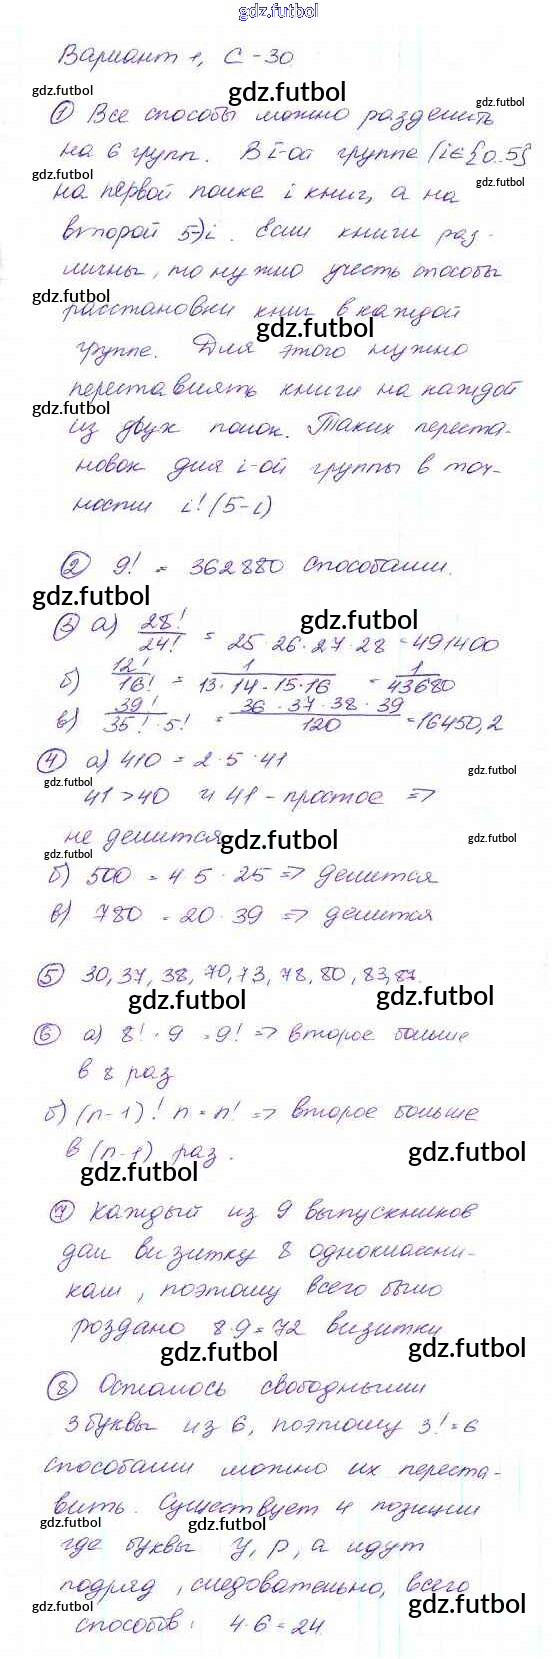 gdz.futbol
Вариант 1, С-30
gdz.futbol
gdz.futbol
① Все способы можно разделить
gdz.futbol
на 6 групп. В i-ой группе (i∈{0.5}
gdz.futbol
gdz.futbol
на первой полке i книг, а на
второй 5-i. Если книги раз-
личны, то нужно учесть способы
gdz.futbol
расстановки книг в каждой
gdz.futbol
группе. Для этого нужно
переставлять книги на каждой
gdz.futbol
из двух полок. Таких переста-
новок для i-ой группы в точ-
ности i! (5-i)
② 9! = 362880 способами.
gdz.futbol
gdz.futbol
③ а) 28!/24! = 25·26·27·28 = 491400
б) 12!/16! = 1/13·14·15·16 = 1/43680
в) 39!/35!·5! = 36·37·38·39/120 = 16450,2
④ а) 410 = 2·5·41
gdz.futbol
gdz.futbol
41>40 и 41 - простое =>
не делится
gdz.futbol
gdz.futbol
gdz.futbol
б) 500 = 4·5·25 => делится
в) 780 = 20·39 => делится
⑤ 30, 37, 38, 70, 73, 78, 80, 83, 87.
gdz.futbol
gdz.futbol
⑥ а) 8!·9 = 9! => второе больше
в 8 раз
б) (n-1)! n = n! => второе больше
в (n-1) раз.
gdz.futbol
gdz.futbol
⑦ Каждый из 9 выпускников
дал визитку 8 однокласcни-
кам, поэтому всего было
роздано 8·9=72 визитки
gdz.futbol
gdz.futbol
⑧ Осталось свободными
3 буквы из 6, поэтому 3!=6
способами можно их переста-
вить. Существует 4 позиции
gdz.futbol
gdz.futbol
где буквы у, р, а идут
подряд, следовательно, всего
gdz.futbol
gdz.futbol
способов: 4·6=24.